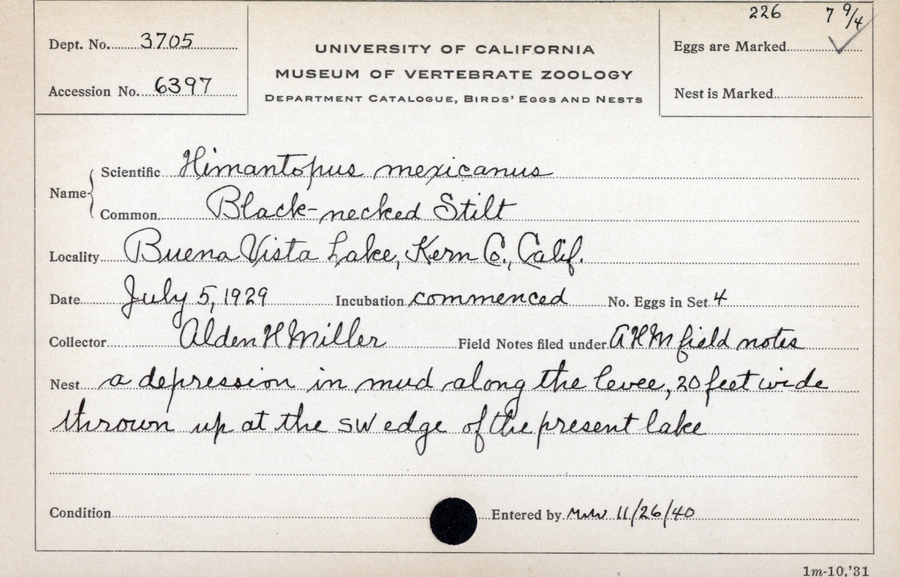 226 7 9/4
Dept. No. 3705
UNIVERSITY OF CALIFORNIA
Eggs are Marked ✓
MUSEUM OF VERTEBRATE ZOOLOGY
Accession No. 6397
DEPARTMENT CATALOGUE, BIRDS' EGGS AND NESTS
Nest is Marked
Name { Scientific Himantopus mexicanus
Common Black-necked Stilt
Locality Buena Vista Lake, Kern Co., Calif.
Date July 5, 1929 Incubation commenced No. Eggs in Set 4
Collector Alden H Miller Field Notes filed under AHM field notes
Nest a depression in mud along the levee, 20 feet wide
thrown up at the SW edge of the present lake
Condition Entered by 11/26/40
1m-10,'31